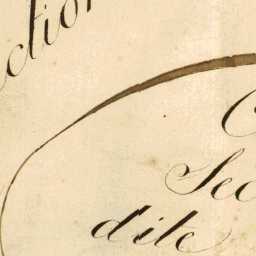 ction
C
Sec
dite